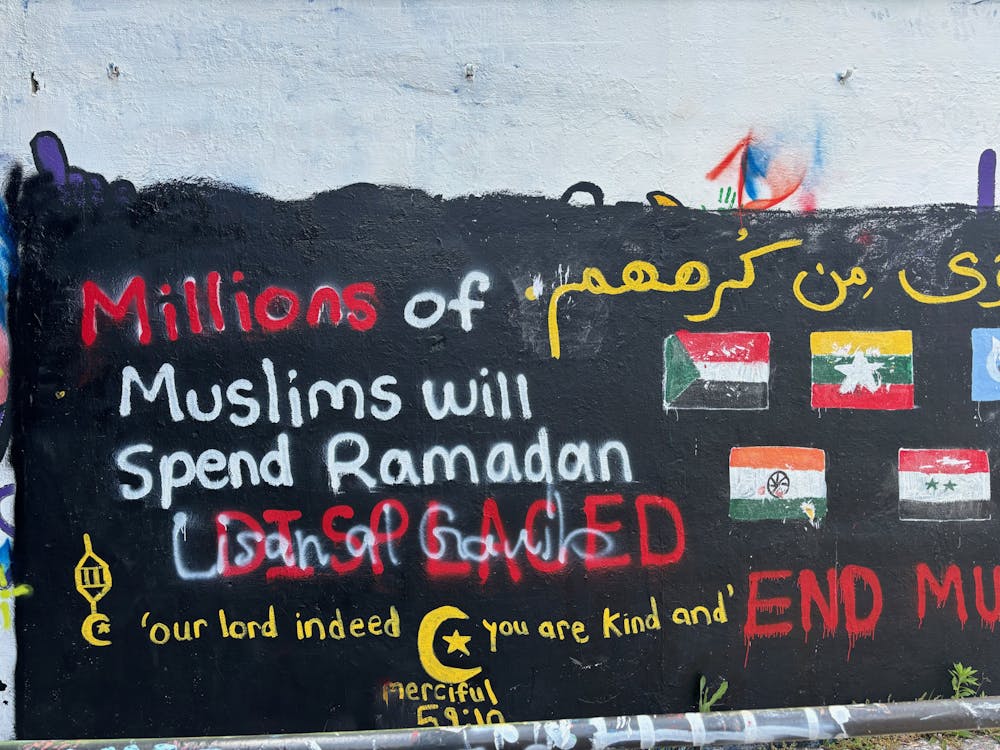 Millions of
Muslims will
Spend Ramadan
DISPLACED
Lisan al
'our lord indeed you are kind and'
merciful
59:10
مِن كُرههم.
END MU